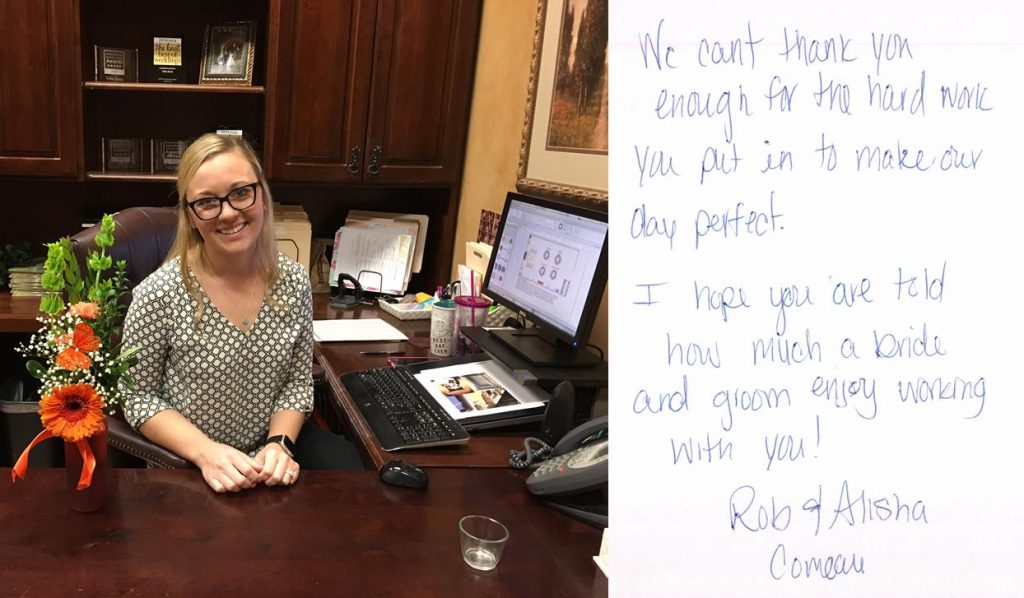 the knot
best of
weddings
BEST
DAY
EVER
We cant thank you
enough for the hard work
you put in to make our
day perfect.
I hope you are told
how much a bride
and groom enjoy working
with you!
Rob & Alisha
Comeau